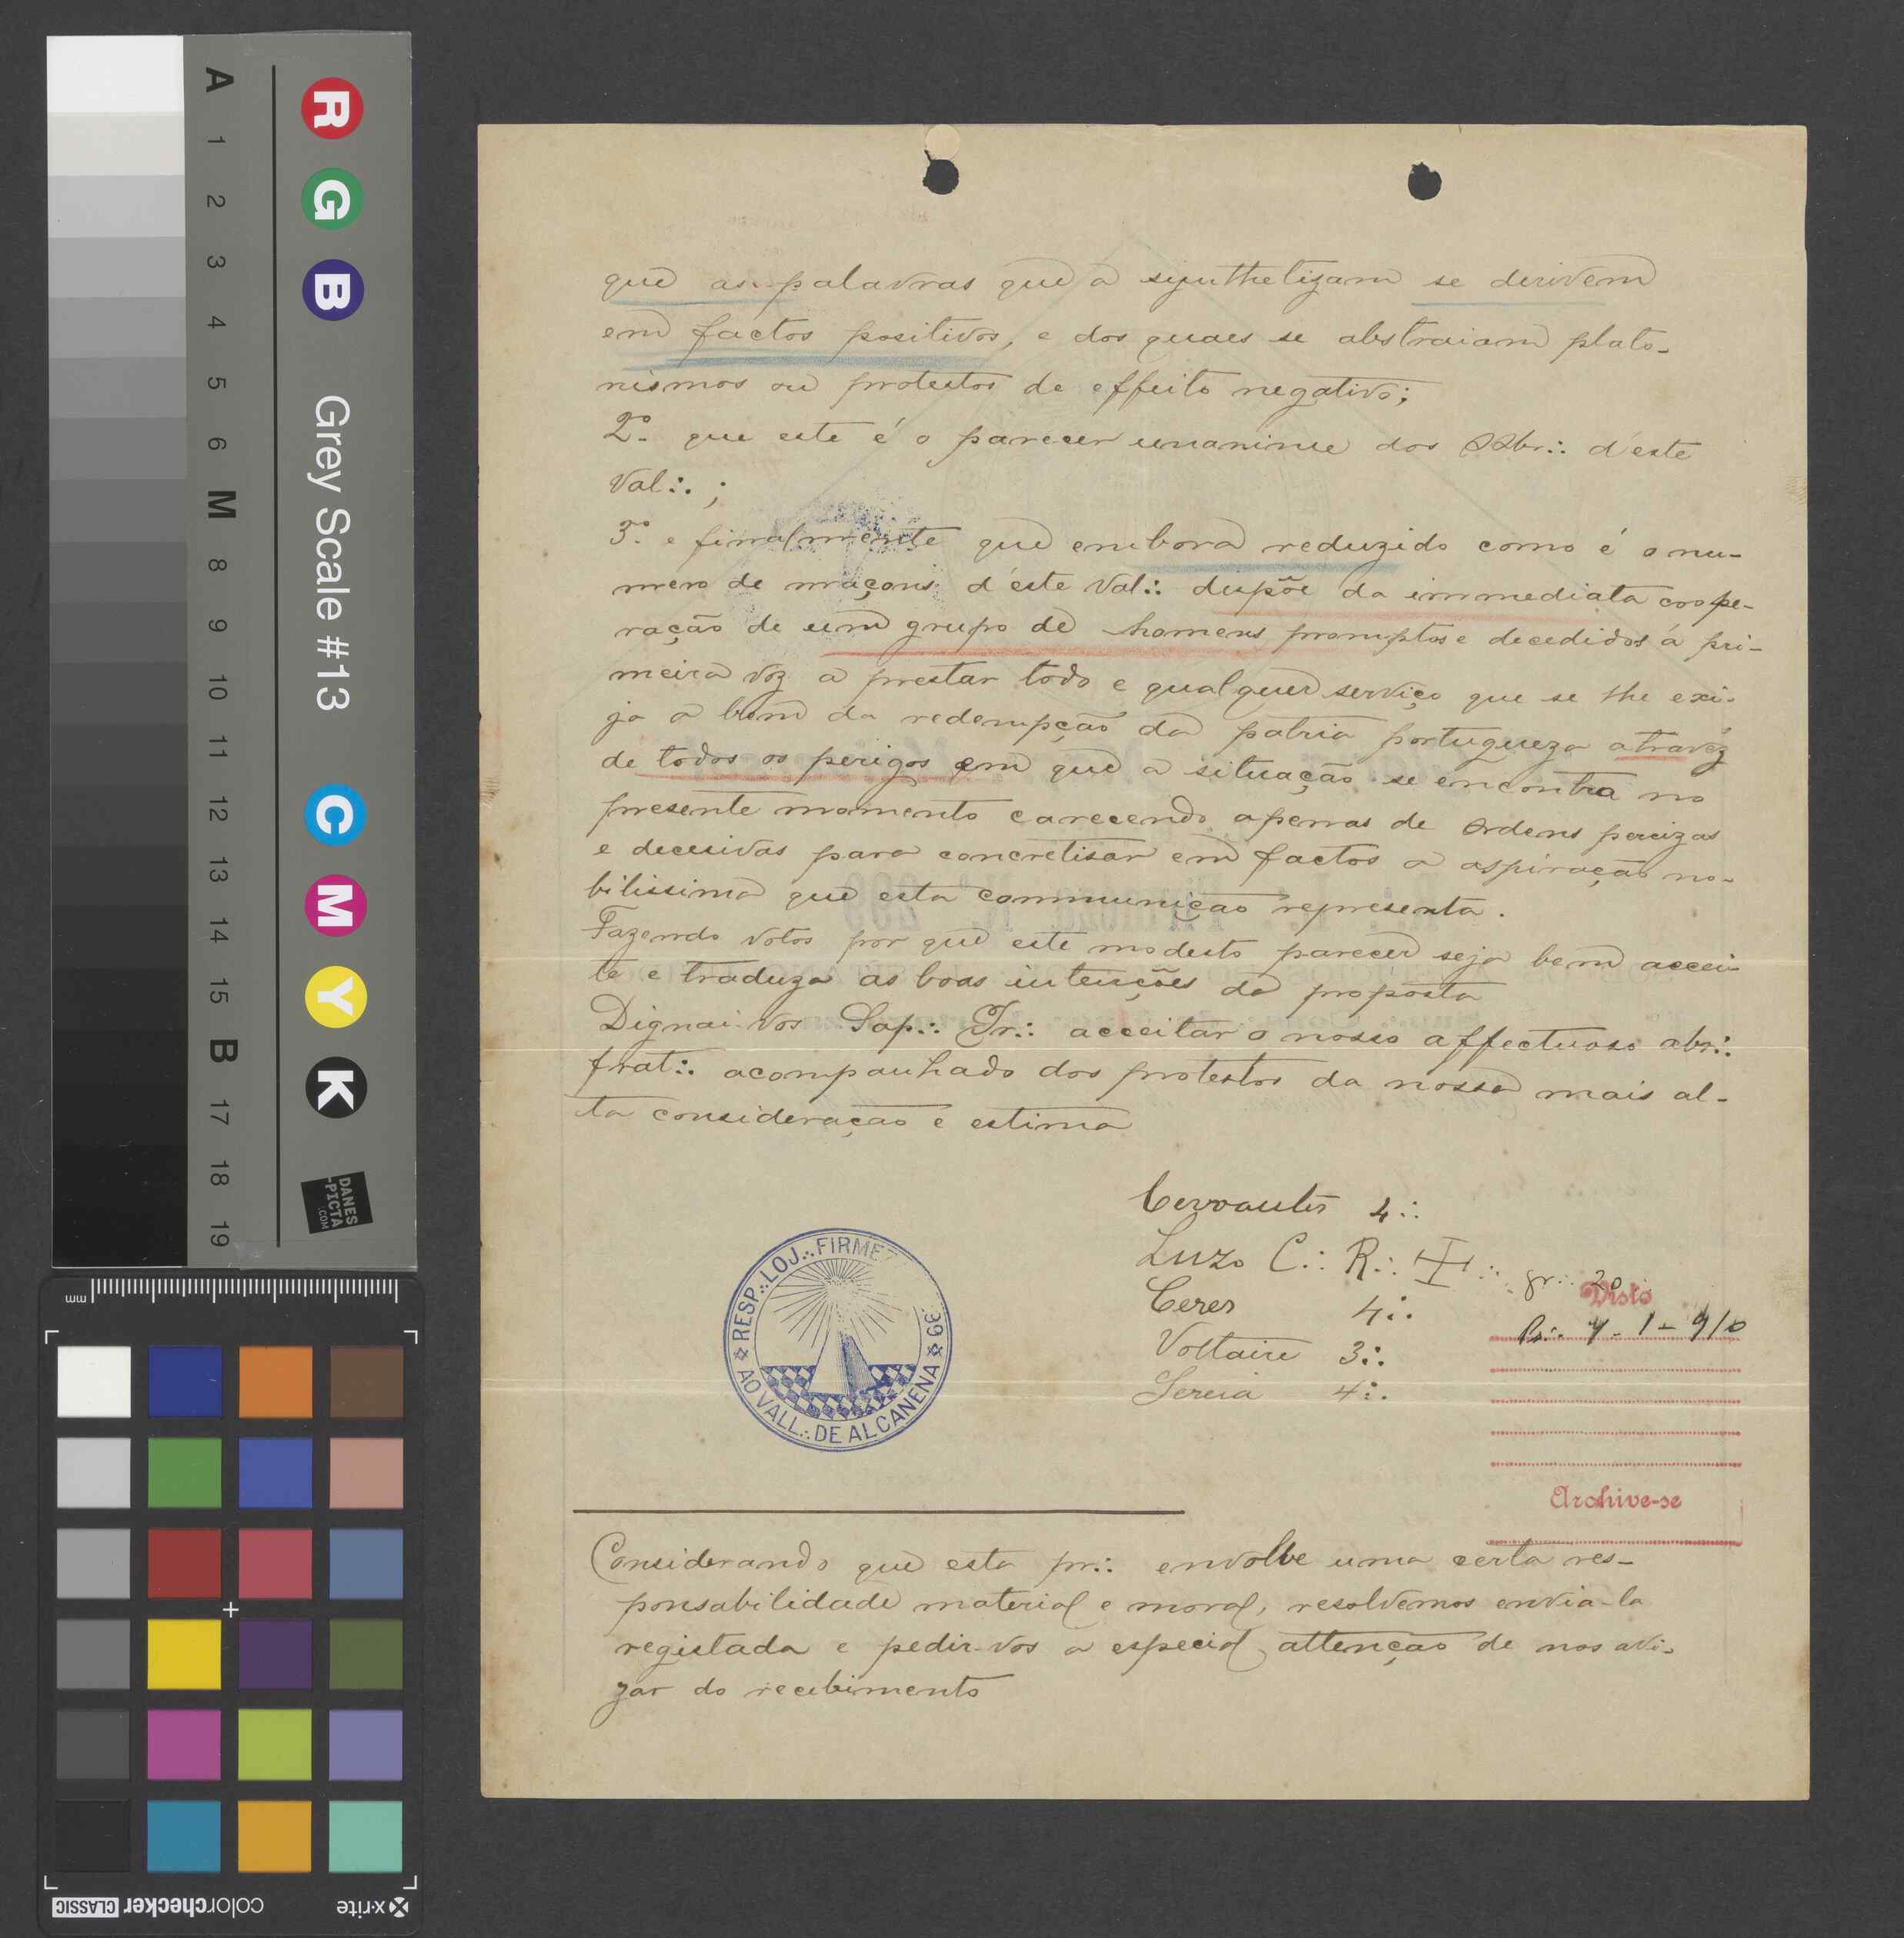 que as palavras que a synthetizam se derivem
em factos positivos, e dos quaes se abstraiam plato-
nismos ou protestos de effeito negativo;
2º que este é o parecer unanime dos Obr∴ d'este
Val∴;
3º e finalmente que embora reduzido como é o nu-
mero de maçons d'este Val∴ dispõe da immediata coope-
ração de um grupo de homens promptos e decedidos á pri-
meira voz a prestar todo e qualquer serviço que se lhe exi-
ja a bem da redempção da patria portugueza atravéz
de todos os perigos em que a situação se encontra no
presente momento carecendo apenas de ordens percizas
e decesivas para concretisar em factos a aspiração no-
bilissima que esta communição representa.
Fazendo votos por que este modesto parecer seja bem accei-
te e traduza as boas intenções da proposta
Dignai-vos Sap∴ Ir∴ acceitar o nosso affectuoso abr∴
frat∴ acompanhado dos protestos da nossa mais al-
ta consideração e estima
Cervantes 4∴
Luzo C∴ R∴ ∴ gr∴ 20
Ceres 4∴
Voltaire 3∴
Sereia 4∴
RESP∴ LOJ∴ FIRMEZ
AO VALL∴ DE ALCANENA
Visto
7-1-910
Archive-se
Considerando que esta pr∴ envolve uma certa res-
ponsabilidade material e moral, resolvemos envia-la
registada e pedir-vos a especial attenção de nos avi-
zar do recebimento
A 1 2 3 4 5 6 M 8 9 10 11 12 13 14 15 B 17 18 19
R G B
Grey Scale #13
C M Y K
DANES
-PICTA
.COM
mm
x-rite
colorchecker CLASSIC